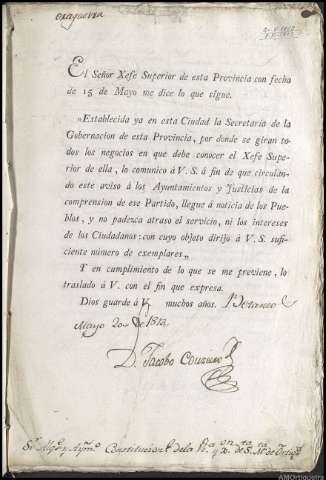 El Señor Xefe Superior de esta Provincia con fecha
de 15 de Mayo me dice lo que sigue.
„Establecida ya en esta Ciudad la Secretaría de la
Gobernacion de esta Provincia, por donde se giran to-
dos los negocios en que debe conocer el Xefe Supe-
rior de ella, lo comunico á V. S. á fin de que circulan-
do este aviso á los Ayuntamientos y Justicias de la
comprension de ese Partido, llegue á noticia de los Pue-
blos, y no padezca atraso el servicio, ni los intereses
de los Ciudadanos: con cuyo objeto dirijo á V. S. sufi-
ciente número de exemplares„
Y en cumplimiento de lo que se me previene, lo
traslado á V. con el fin que expresa.
Dios guarde á V. muchos años. Betanzos
Mayo 20 de 1813
D. Jacobo
Constitucion.l de la
AMOrtigueira